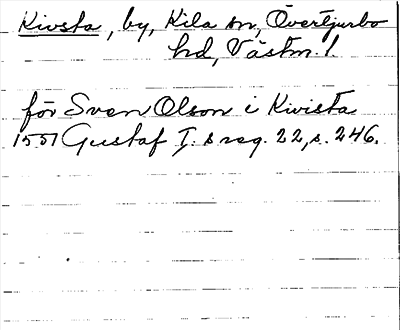 Kivsta, by, Kila sn, Övertjurbo
hd, Västm. l.
för Sven Olson i Kivista
1551 Gustaf I. s reg. 22, s. 246.